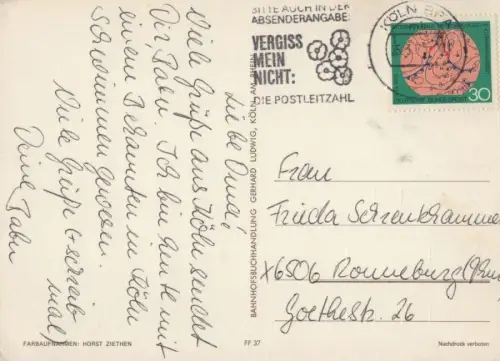 BITTE AUCH IN DER
ABSENDERANGABE:
VERGISS
MEIN
NICHT:
DIE POSTLEITZAHL
KÖLN
30
DEUTSCHE BUNDESPOST
Liebe Oma!
Viele Grüße aus Köln sendet
Dir, Gabu. Ich bin heute mit
einem Bekannten in Köln
schwimmen gewesen.
Viele Grüße + schreib
mal,
Deine Gabu
BAHNHOFSBUCHHANDLUNG GERHARD LUDWIG, KÖLN AM RHEIN
Frau
Frieda
X6506 Ronneburg
Goethestr. 26
FARBAUFNAHMEN: HORST ZIETHEN
FF 37
Nachdruck verboten